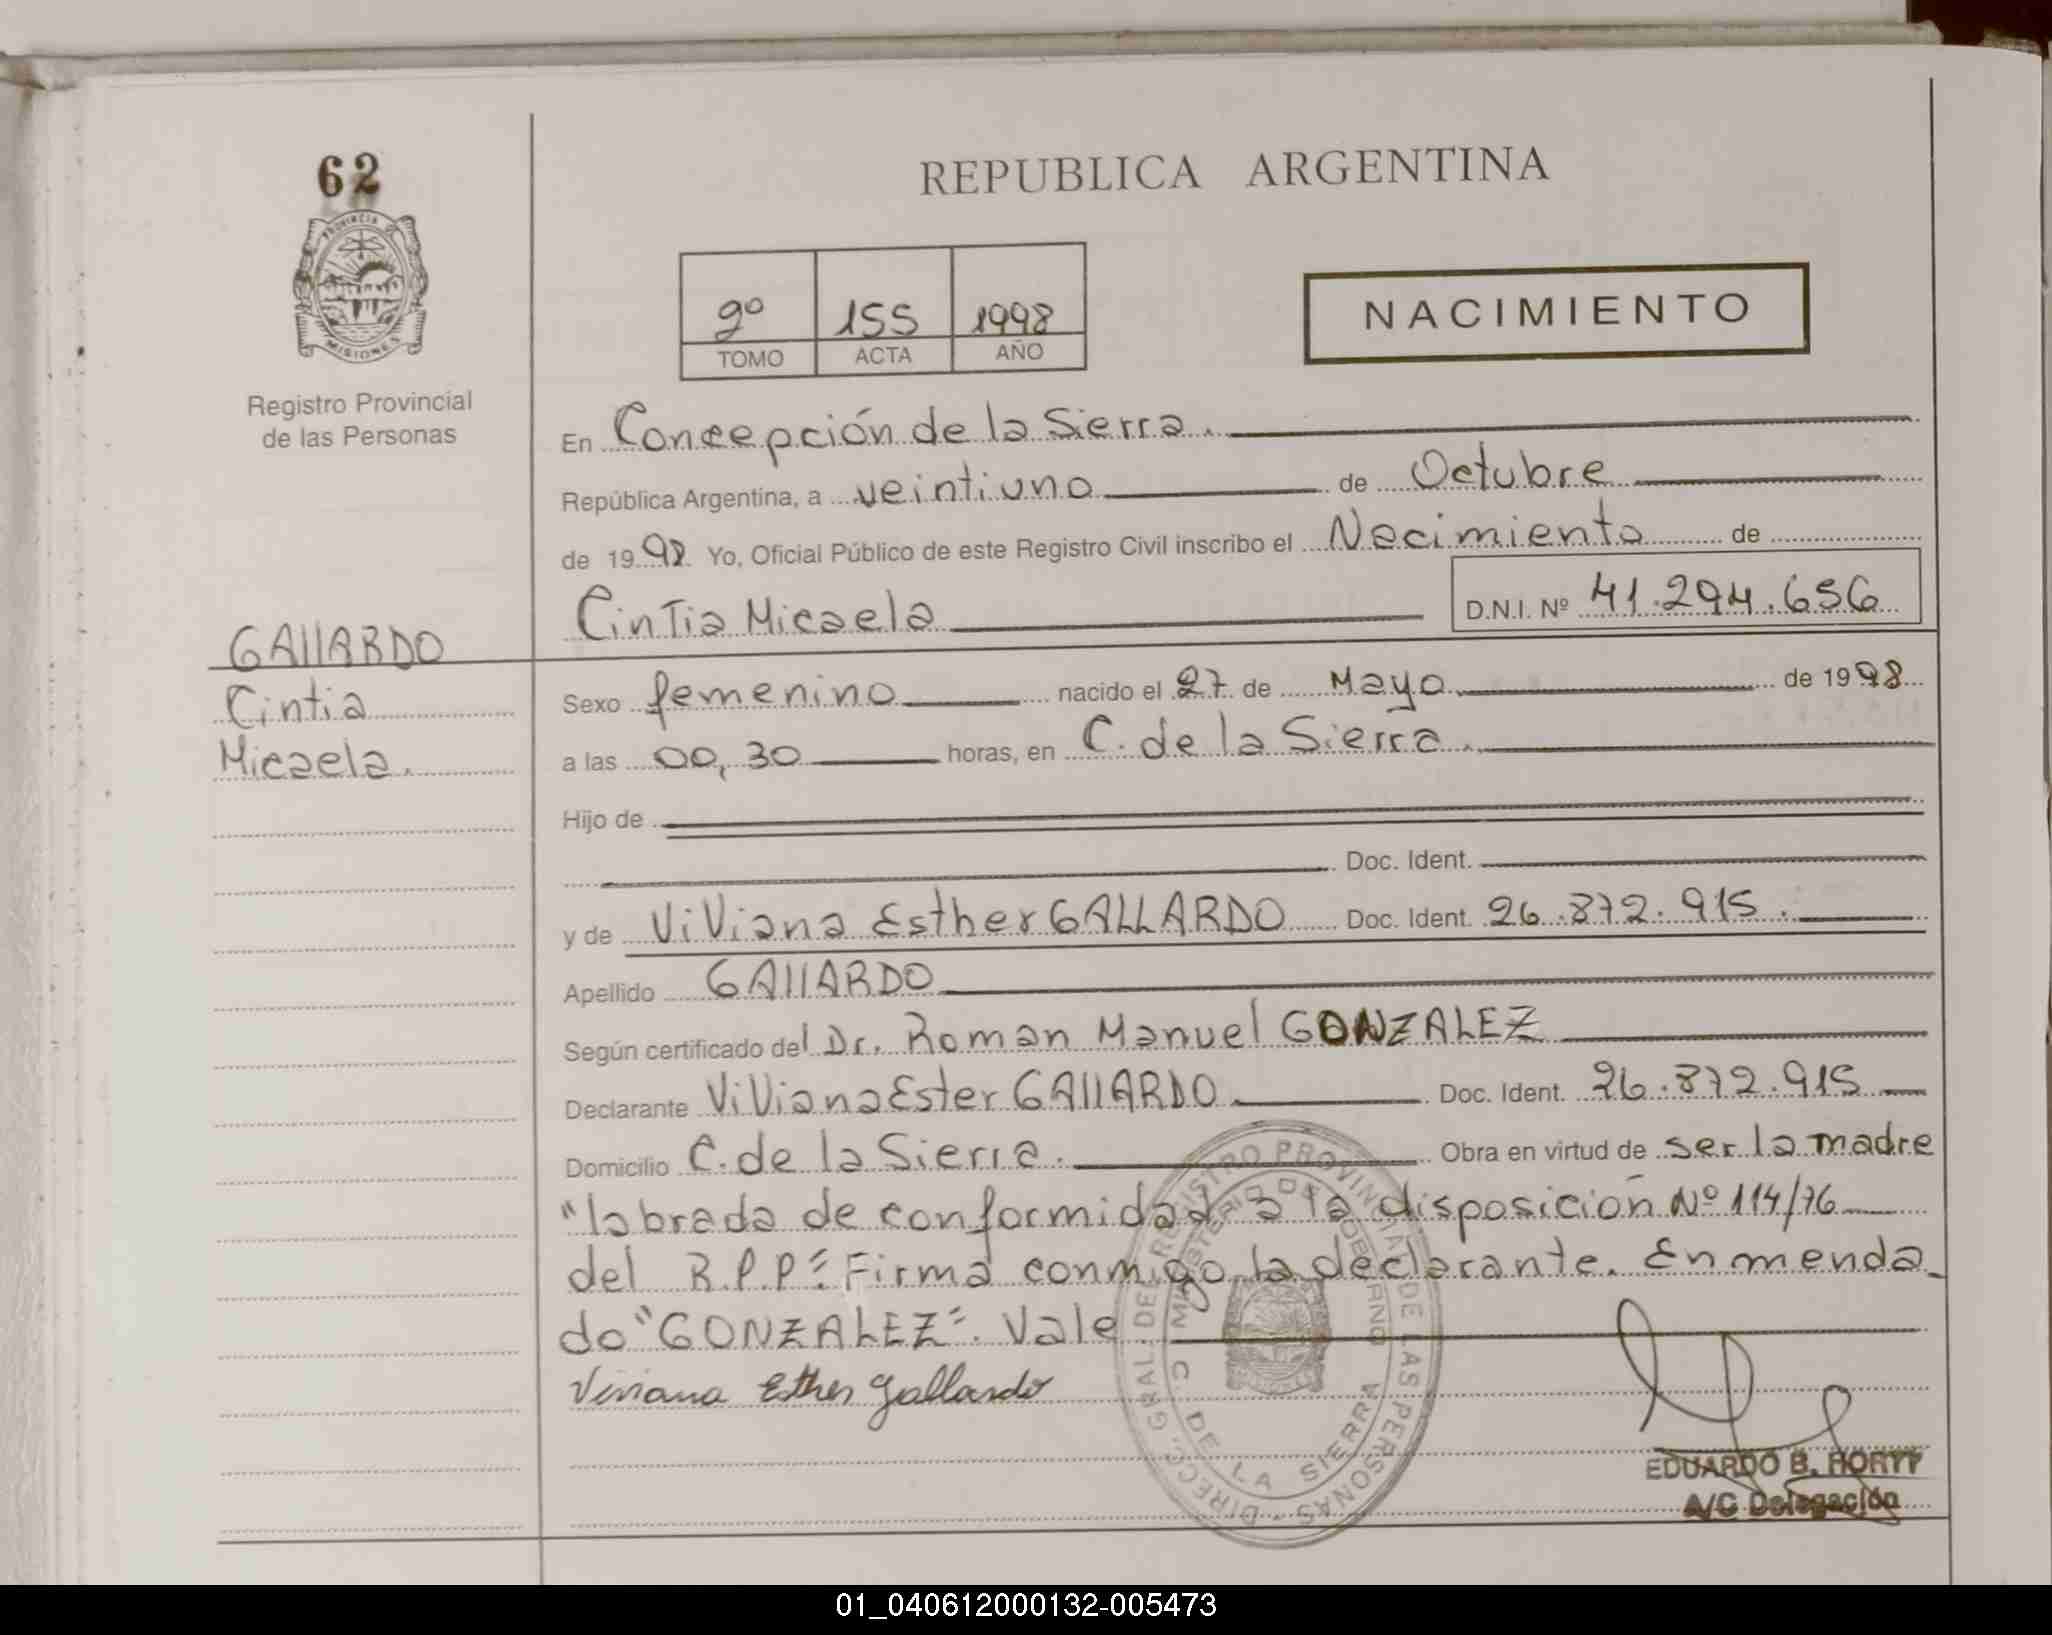 62
PROVINCIA DE MISIONES
Registro Provincial
de las Personas
GAllARDO
Cintia
Micaela.
REPUBLICA ARGENTINA
2º 155 1998
TOMO ACTA AÑO
NACIMIENTO
En Concepción de la Sierra.
República Argentina, a veintiuno de Octubre
de 1998 Yo, Oficial Público de este Registro Civil inscribo el Nacimiento de
Cintia Micaela D.N.I. Nº 41.294.656
Sexo femenino nacido el 27 de Mayo de 1998
a las 00,30 horas, en C. de la Sierra.
Hijo de
Doc. Ident.
y de ViViana Esther GALLARDO Doc. Ident. 26.872.915.
Apellido GAllARDO
Según certificado del Dr. Roman Manuel GONZALEZ
Declarante ViViana Ester GAllARDO Doc. Ident. 26.872.915
Domicilio C. de la Sierra. Obra en virtud de ser la madre
"labrada de conformidad a la disposición Nº 114/76
del R.P.P". Firma conmigo la declarante. Enmenda_
do "GONZALEZ". Vale
Viviana Esther Gallardo
DIRECC. GRAL. DEL REGISTRO PROVINCIAL DE LAS PERSONAS -
MINISTERIO DE GOBIERNO
C. DE LA SIERRA
EDUARDO B.
A/C Delegación
01_040612000132-005473